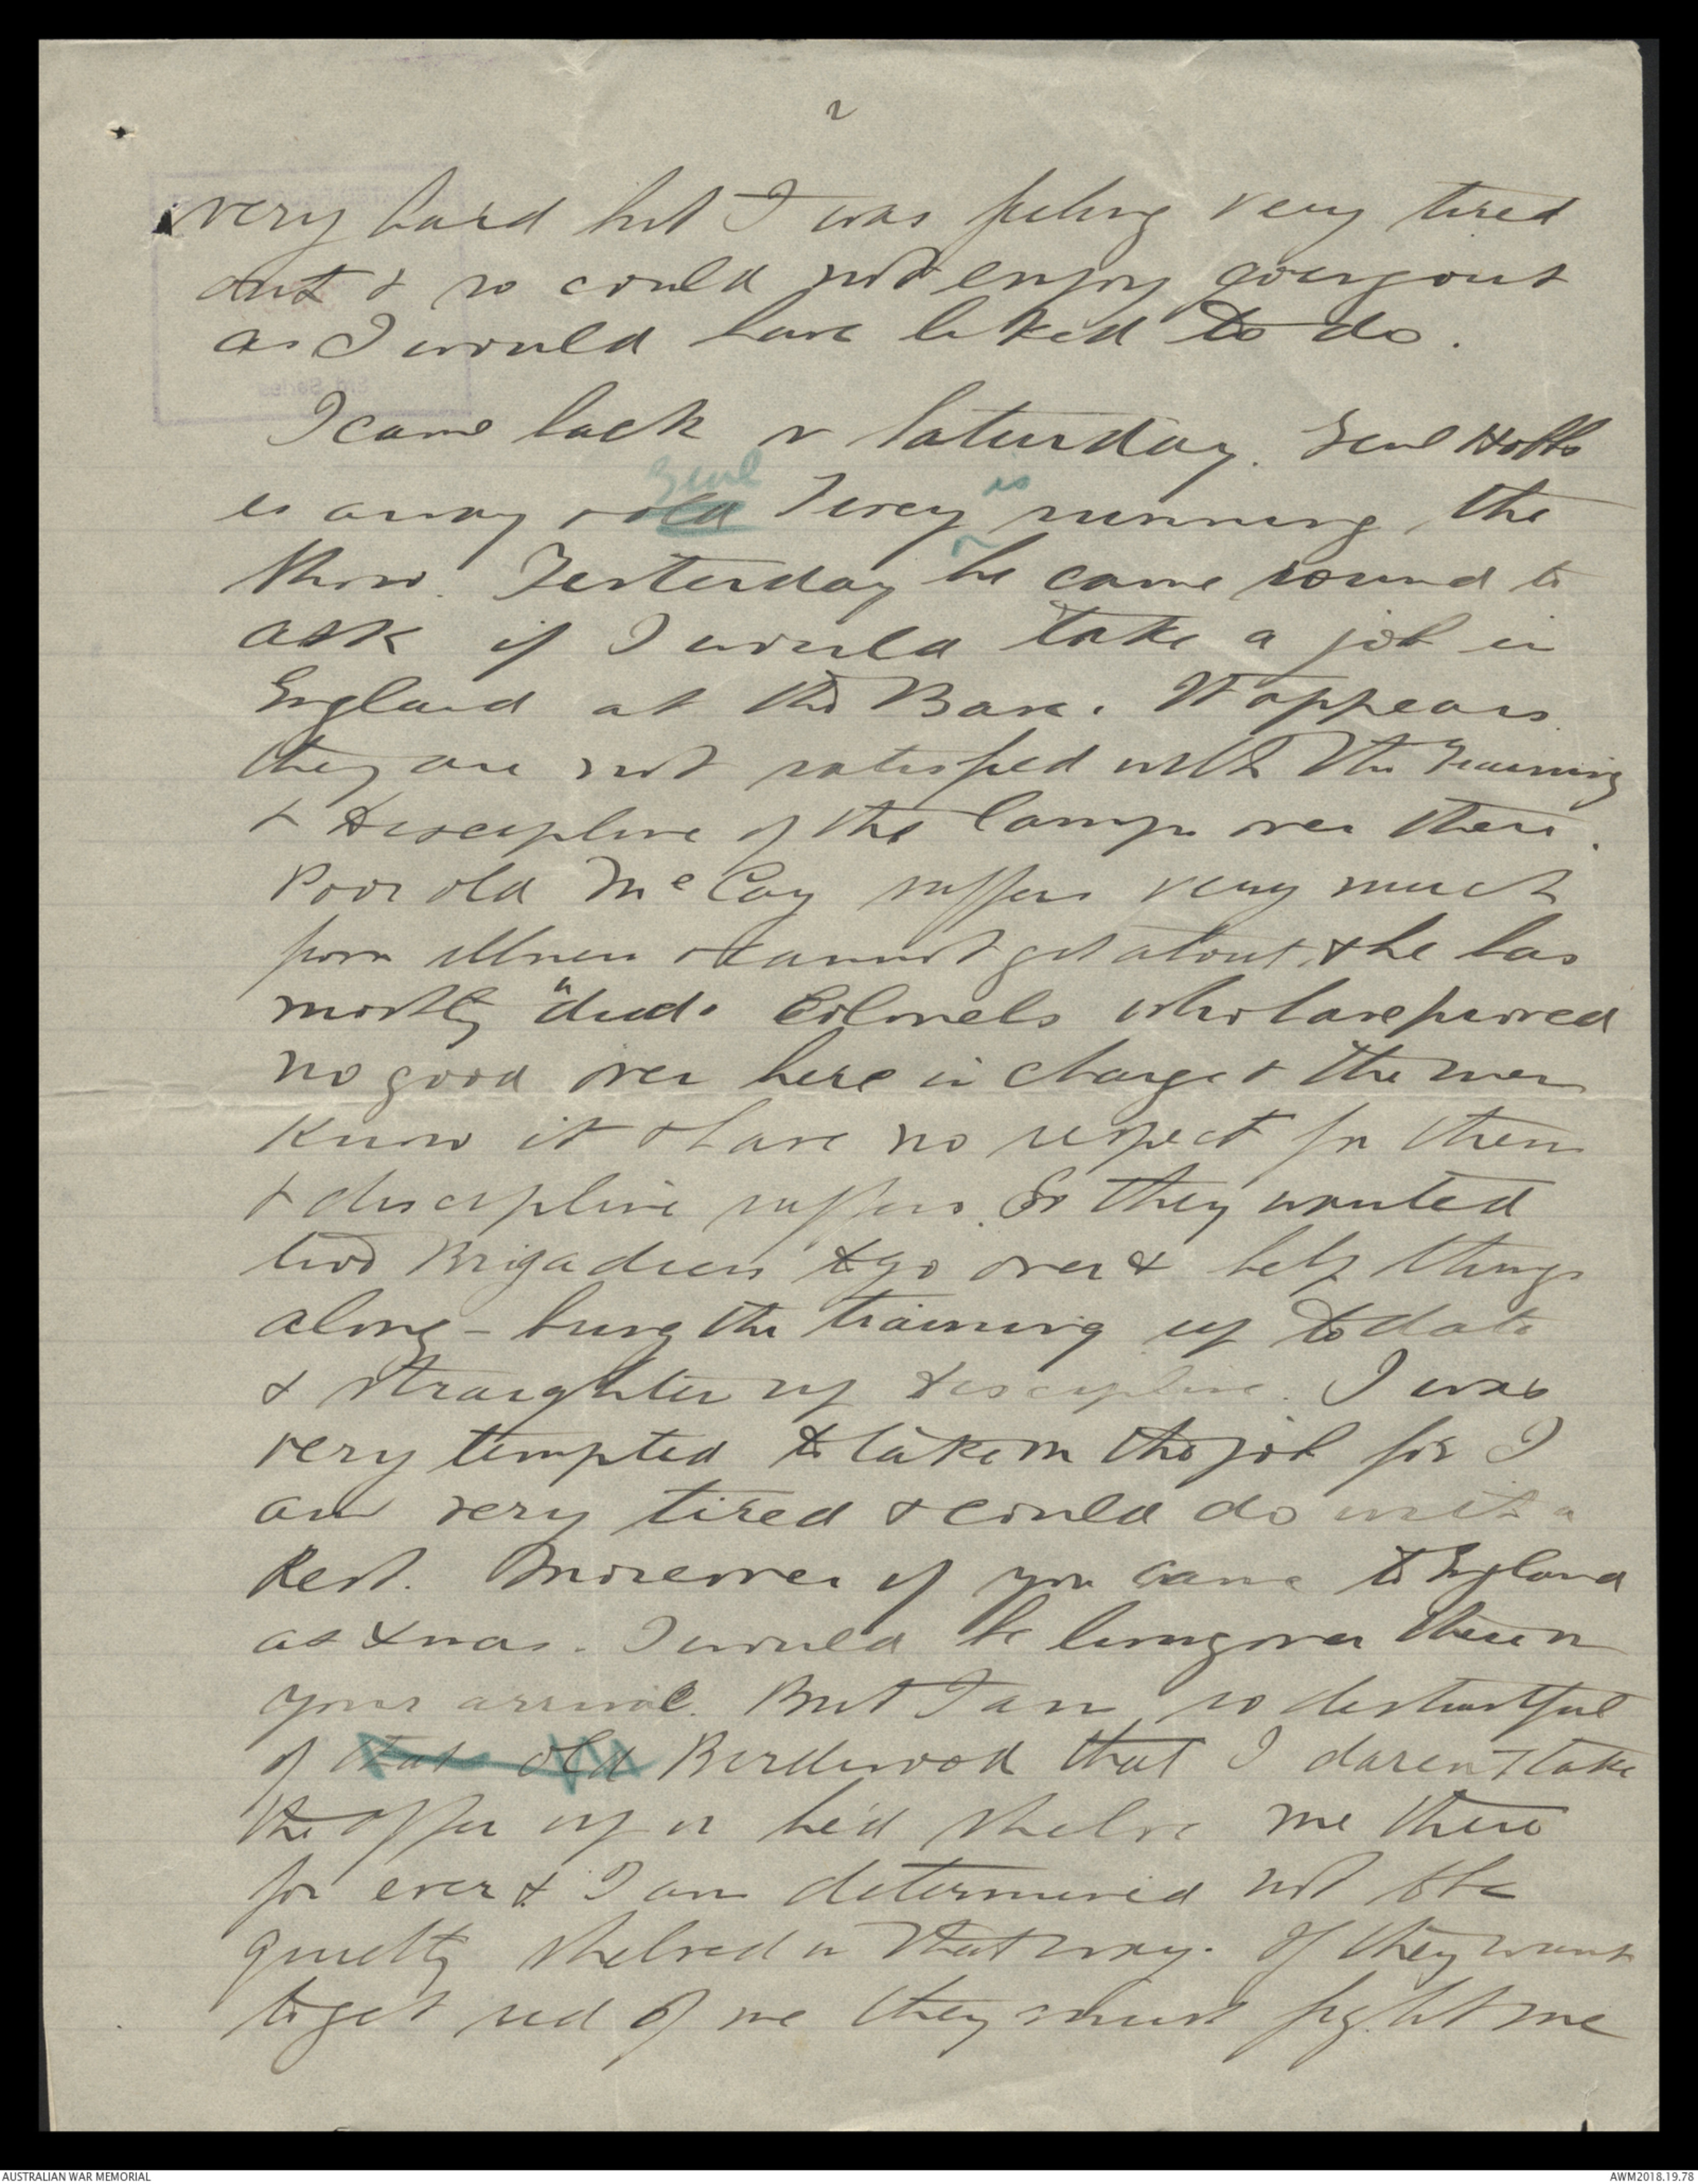 2
very hard but I was feeling very tired
out & so could not enjoy going out
as I would have liked to do.
I came back on Saturday. Genl Hobbs
is away & old Genl Tivey is running the
show. Yesterday he came round to
ask if I would take a job in
England at the Base. It appears
they are not satisfied with the training
& discipline of the Camps over there.
Poor old McCay suffers very much
from illness & cannot get about, & he has
mostly "dud" Colonels who have proved
no good over here in charge & the men
know it & have no respect for them
& discipline suffers. So they wanted
two Brigadiers to go over & help things
along - bring the training up to date
& straighten up discipline. I was
very tempted to take on the job for I
am very tired & could do with a
Rest. Moreover if you came to England
at Xmas. I would be living over there on
your arrival. But I am so distrustful
of that old Birdwood that I daren't take
the offer up or he'd shelve me there
for ever & I am determined not to be
quietly shelved in that way. If they want
to get rid of me they must fight me
AUSTRALIAN WAR MEMORIAL
AWM2018.19.78